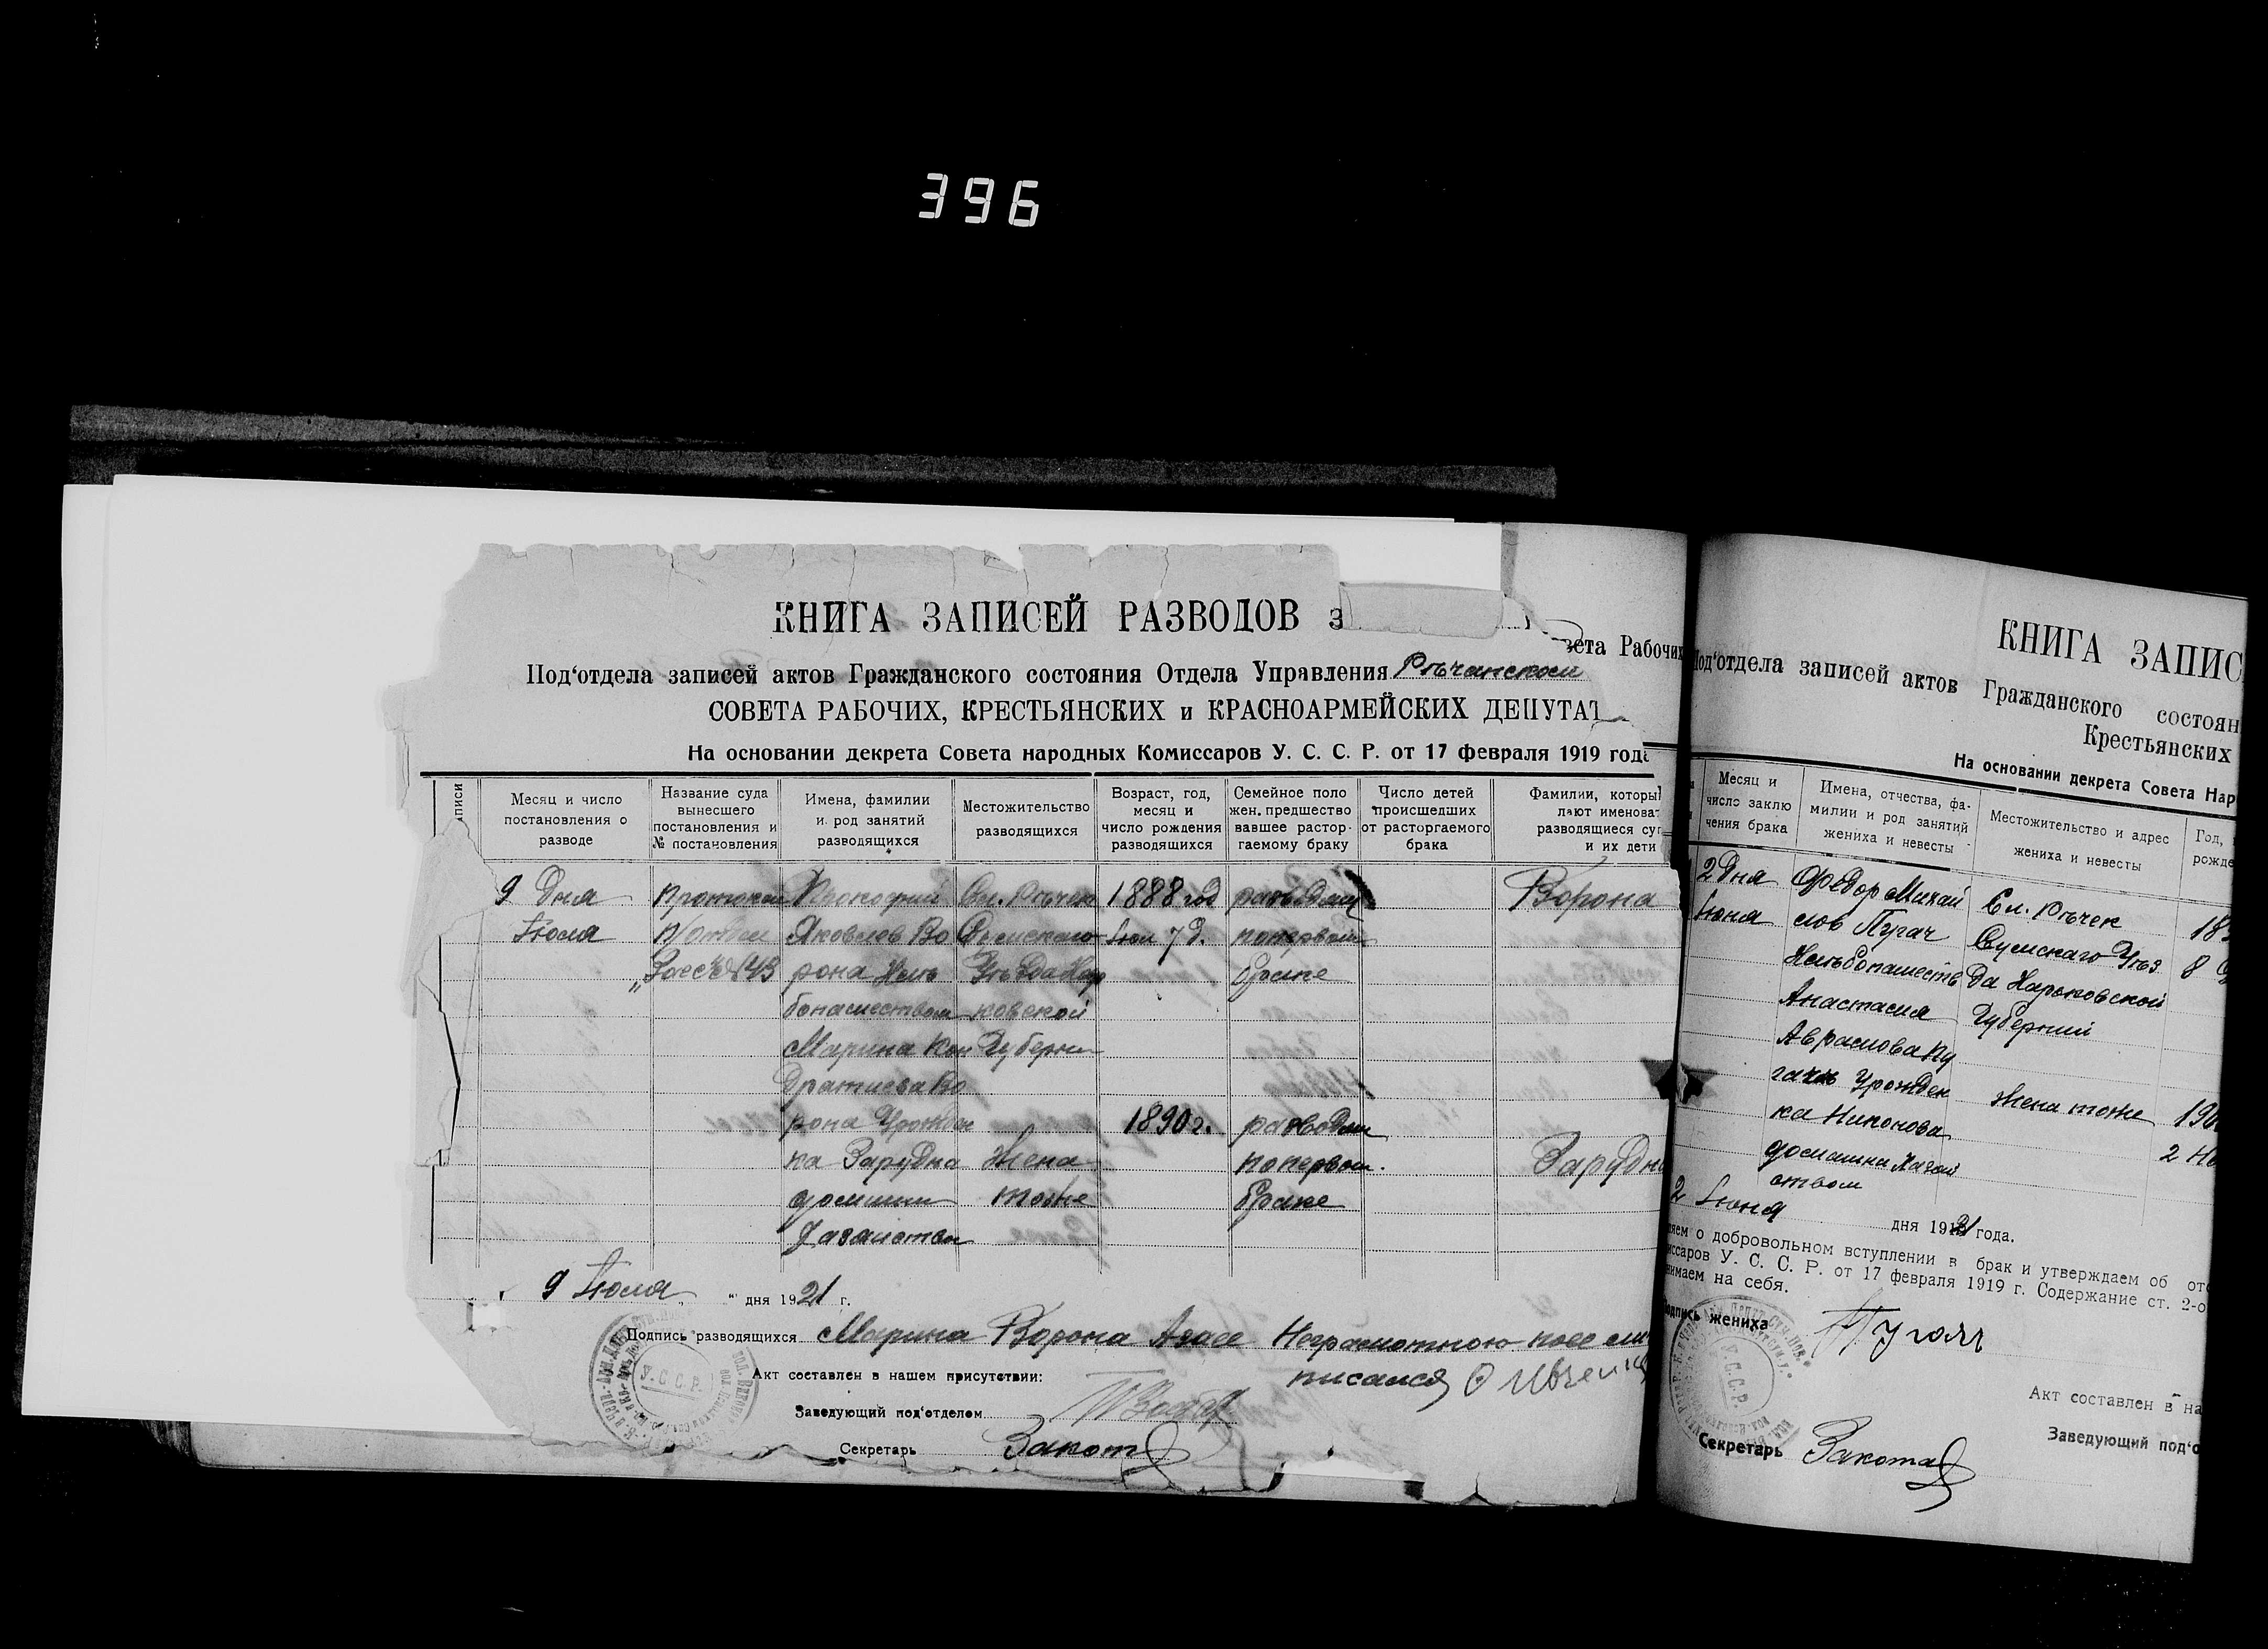 396
КНИГА ЗАПИСЕЙ РАЗВОДОВ з
вета Рабочих
Под‘отдела записей актов Гражданского состояния Отдела Управления Рѣчанскои
СОВЕТА РАБОЧИХ, КРЕСТЬЯНСКИХ и КРАСНОАРМЕЙСКИХ ДЕПУТАТ
На основании декрета Совета народных Комиссаров У. С. С. Р. от 17 февраля 1919 года
писи
Месяц и число
постановления о
разводе
Название суда
вынесшего
постановления и
№ постановления
Имена, фамилии
и род занятий
разводящихся
Местожительство
разводящихся
Возраст, год,
месяц и
число рождения
разводящихся
Семейное поло
жен. предшество
вавшее растор-
гаемому браку
Число детей
происшедших
от расторгаемого
брака
Фамилии, которы
лают именоват
разводящиеся суп
и их дети
9 Дня
Июля
протокол
Прокофий
Яковлев Во
рона Хлѣ
бопашеством
Марина Кон
дратиева Во
рона Урожден
ка Зарудна
домашни
Хазаиство
Сл. Рѣчек
Сумскаго
Уѣзда Хар
ковской
Губерни
Жена
тоже
1888 год
Июл 7 д.
1890 г.
развѣдени
попервом
браке
разводом
попервом.
браке
Ворона
Зарудн
9 Июля „ “ дня 1921 г.
Подпись разводящихся Марина Ворона Азаее Неграмотною
писался
Акт составлен в нашем присутствии:
Заведующий под‘отделом
Секретарь Закота
У.С.С.Р.
КНИГА ЗАПИС
Под‘отдела записей актов Гражданского состоян
Крестьянских
На основании декрета Совета Нар
Месяц и
число заклю
чения брака
Имена, отчества, фа-
милии и род занятий
жениха и невесты
Местожительство и адрес
жениха и невесты
Год,
рожде
2 Дня
Июня
Федор Михай
лов Пугач
Хлѣбопашеств
Анастасия
Аврамова Пу
гачь Урожден
ка Никонова
домашни Хазаи
ством
Сл. Рѣчек
Сумскаго Уѣз
да Харьковской
Губерний
Жена тоже
18
8
190
2 Но
2 Июня дня 1921 года.
ляем о добровольном вступлении в брак и утверждаем об отс
миссаров У. С. С. Р. от 17 февраля 1919 г. Содержание ст. 2-о
нимаем на себя.
Подпись жениха Пугачь
У.С.С.Р.
Акт составлен в на
Заведующий под‘о
Секретарь Закота